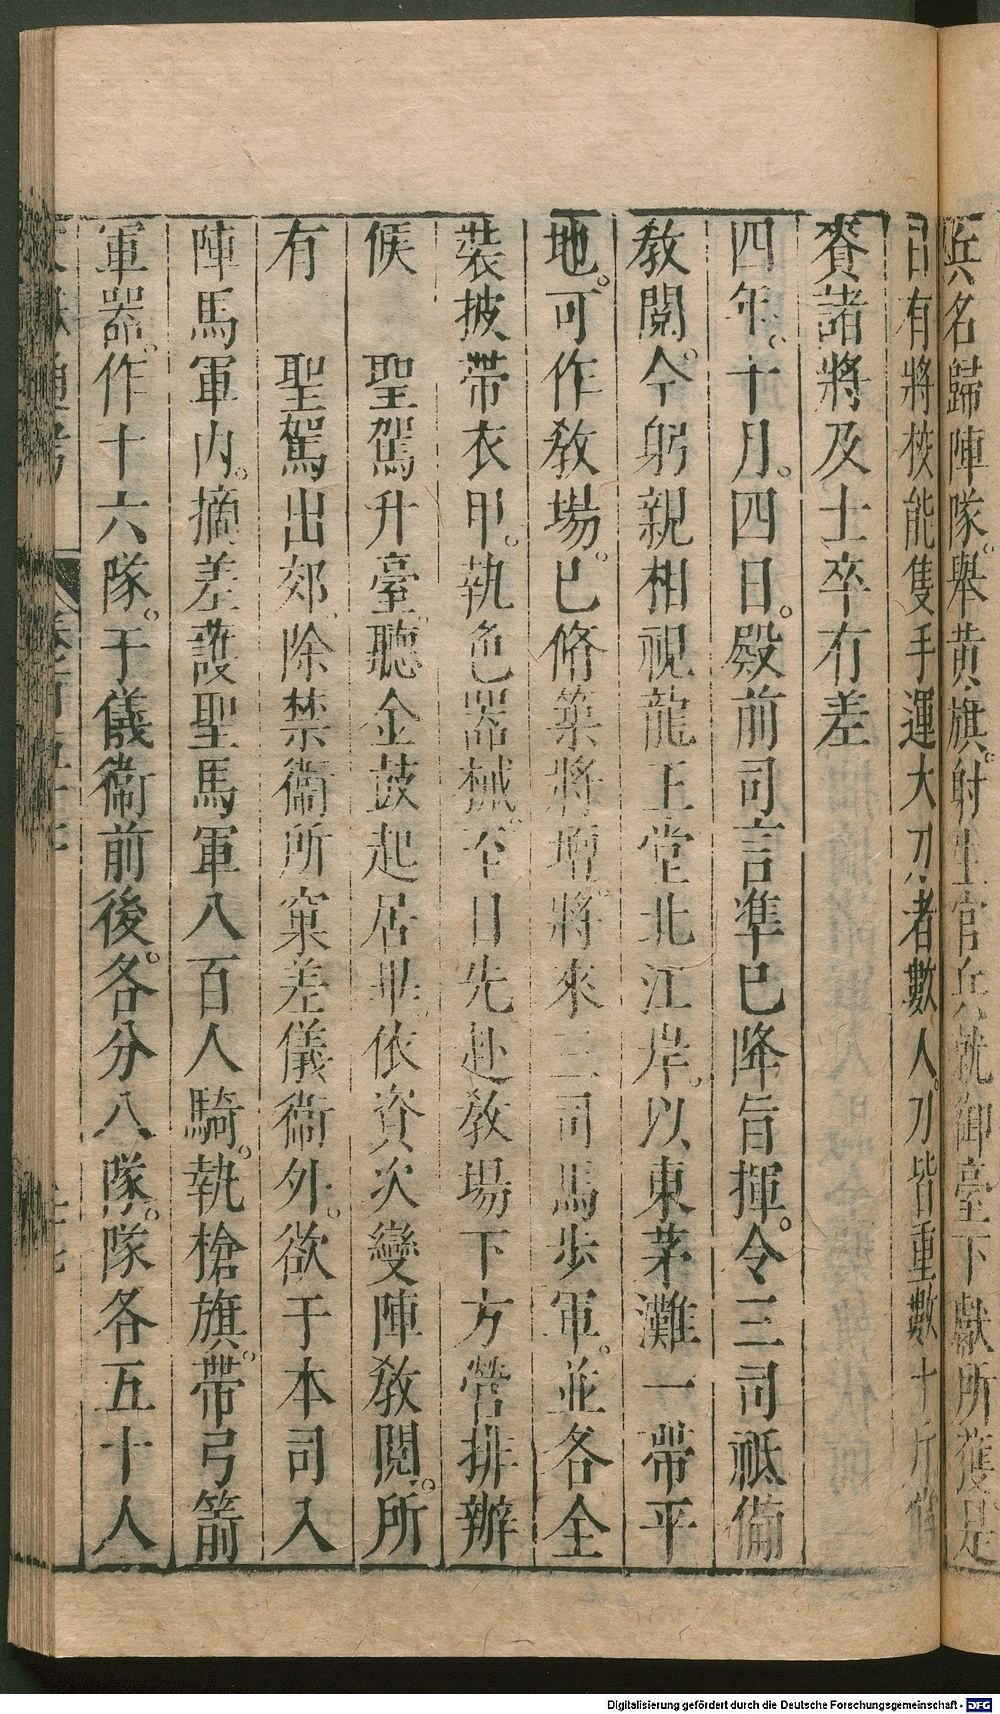 兵名歸陣隊。舉黃旗。射生官兵執御臺下獻所獲是
日有將校能隻手運大刀者數人。刀皆重數十斤
賚諸將及士卒有差
四年。十月。四日。殿前司言準已降旨揮。令三司祗備
教閱。今躬親相視龍王堂北江岸。以東茅灘一帶平
地。可作教場。已脩築將壇。將來三司馬步軍。並各全
裝披帶衣甲。執色器械。至日先赴教場下方營排辦
候　聖駕升臺。聽金鼓起居畢。依資次變陣教閱。所
有　聖駕出郊。除禁衞所窠差儀衞外。欲于本司入
陣馬軍內。摘差護聖馬軍八百人騎。執槍旗。帶弓箭
軍器。作十六隊。于儀衞前後。各分八隊。隊各五十人
Digitalisierung gefördert durch die Deutsche Forschungsgemeinschaft - DFG